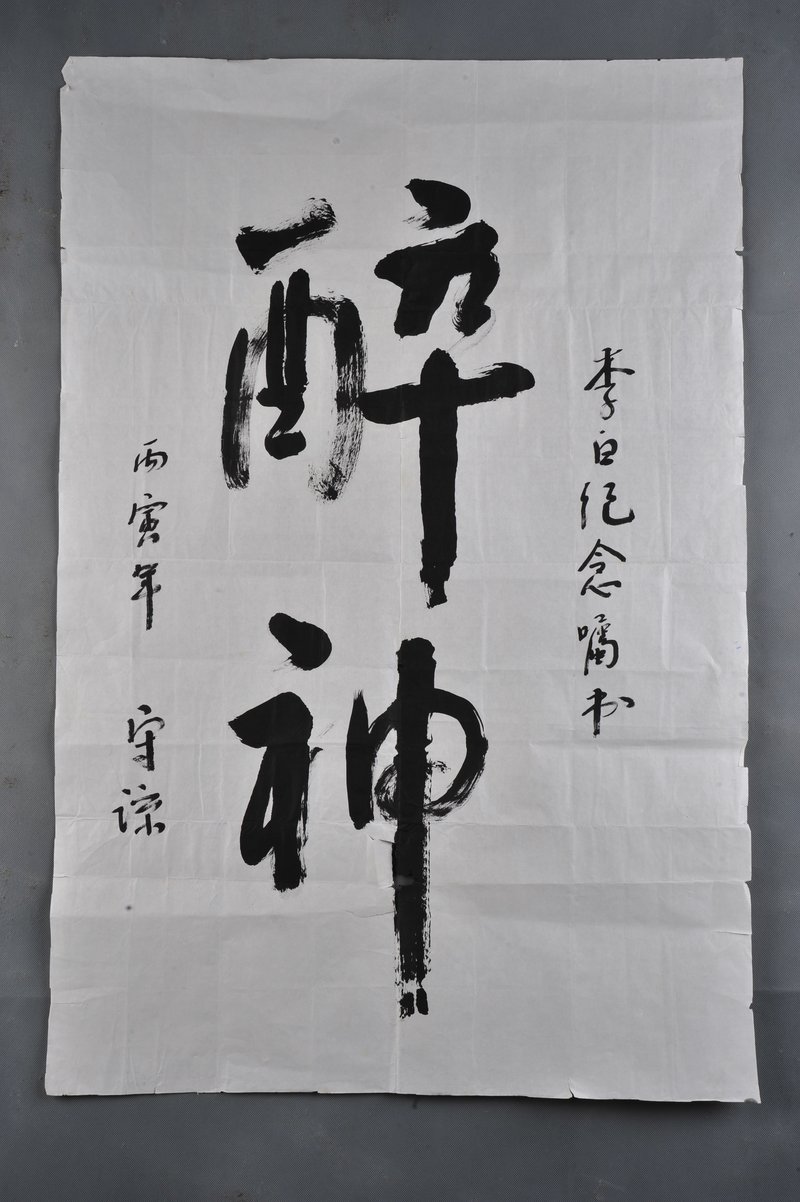 李白纪念嘱书
醉神
丙寅年 守谦